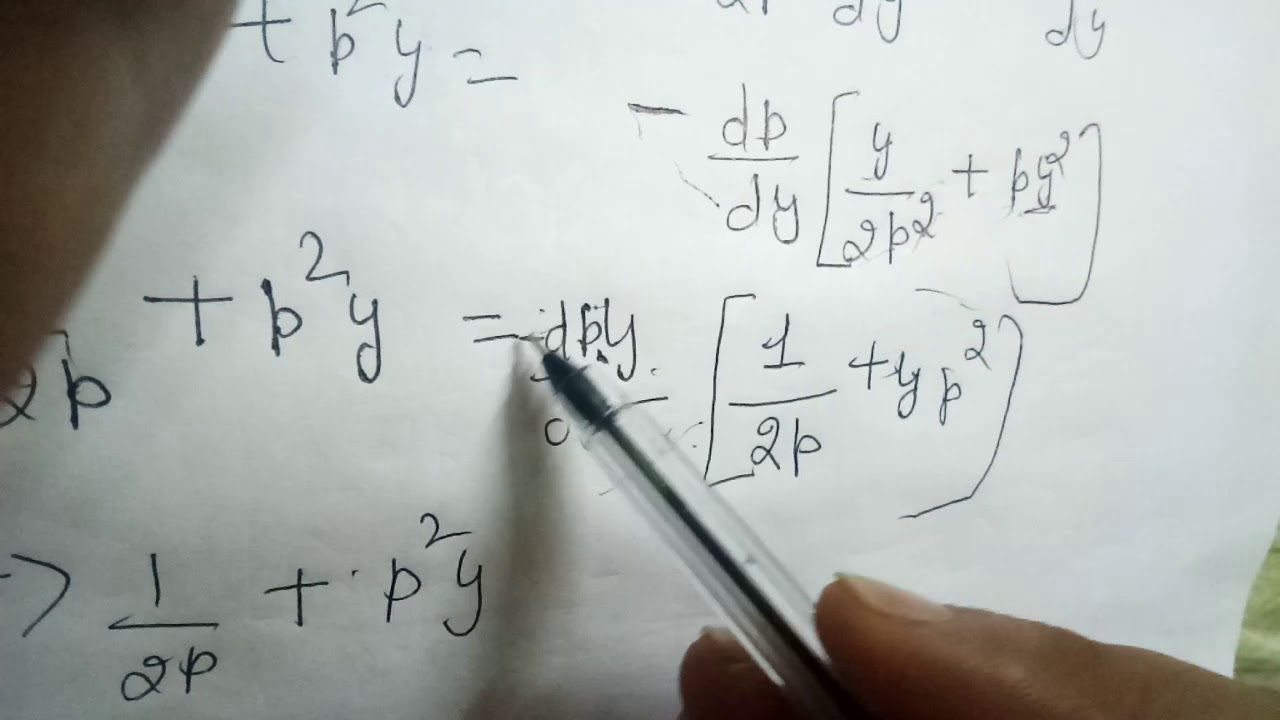 + p²y = dy dy
- dp/dy [y/2p² + py²]
2p + p²y = - dpy [1/2p + yp²]
=> 1/2p + p²y